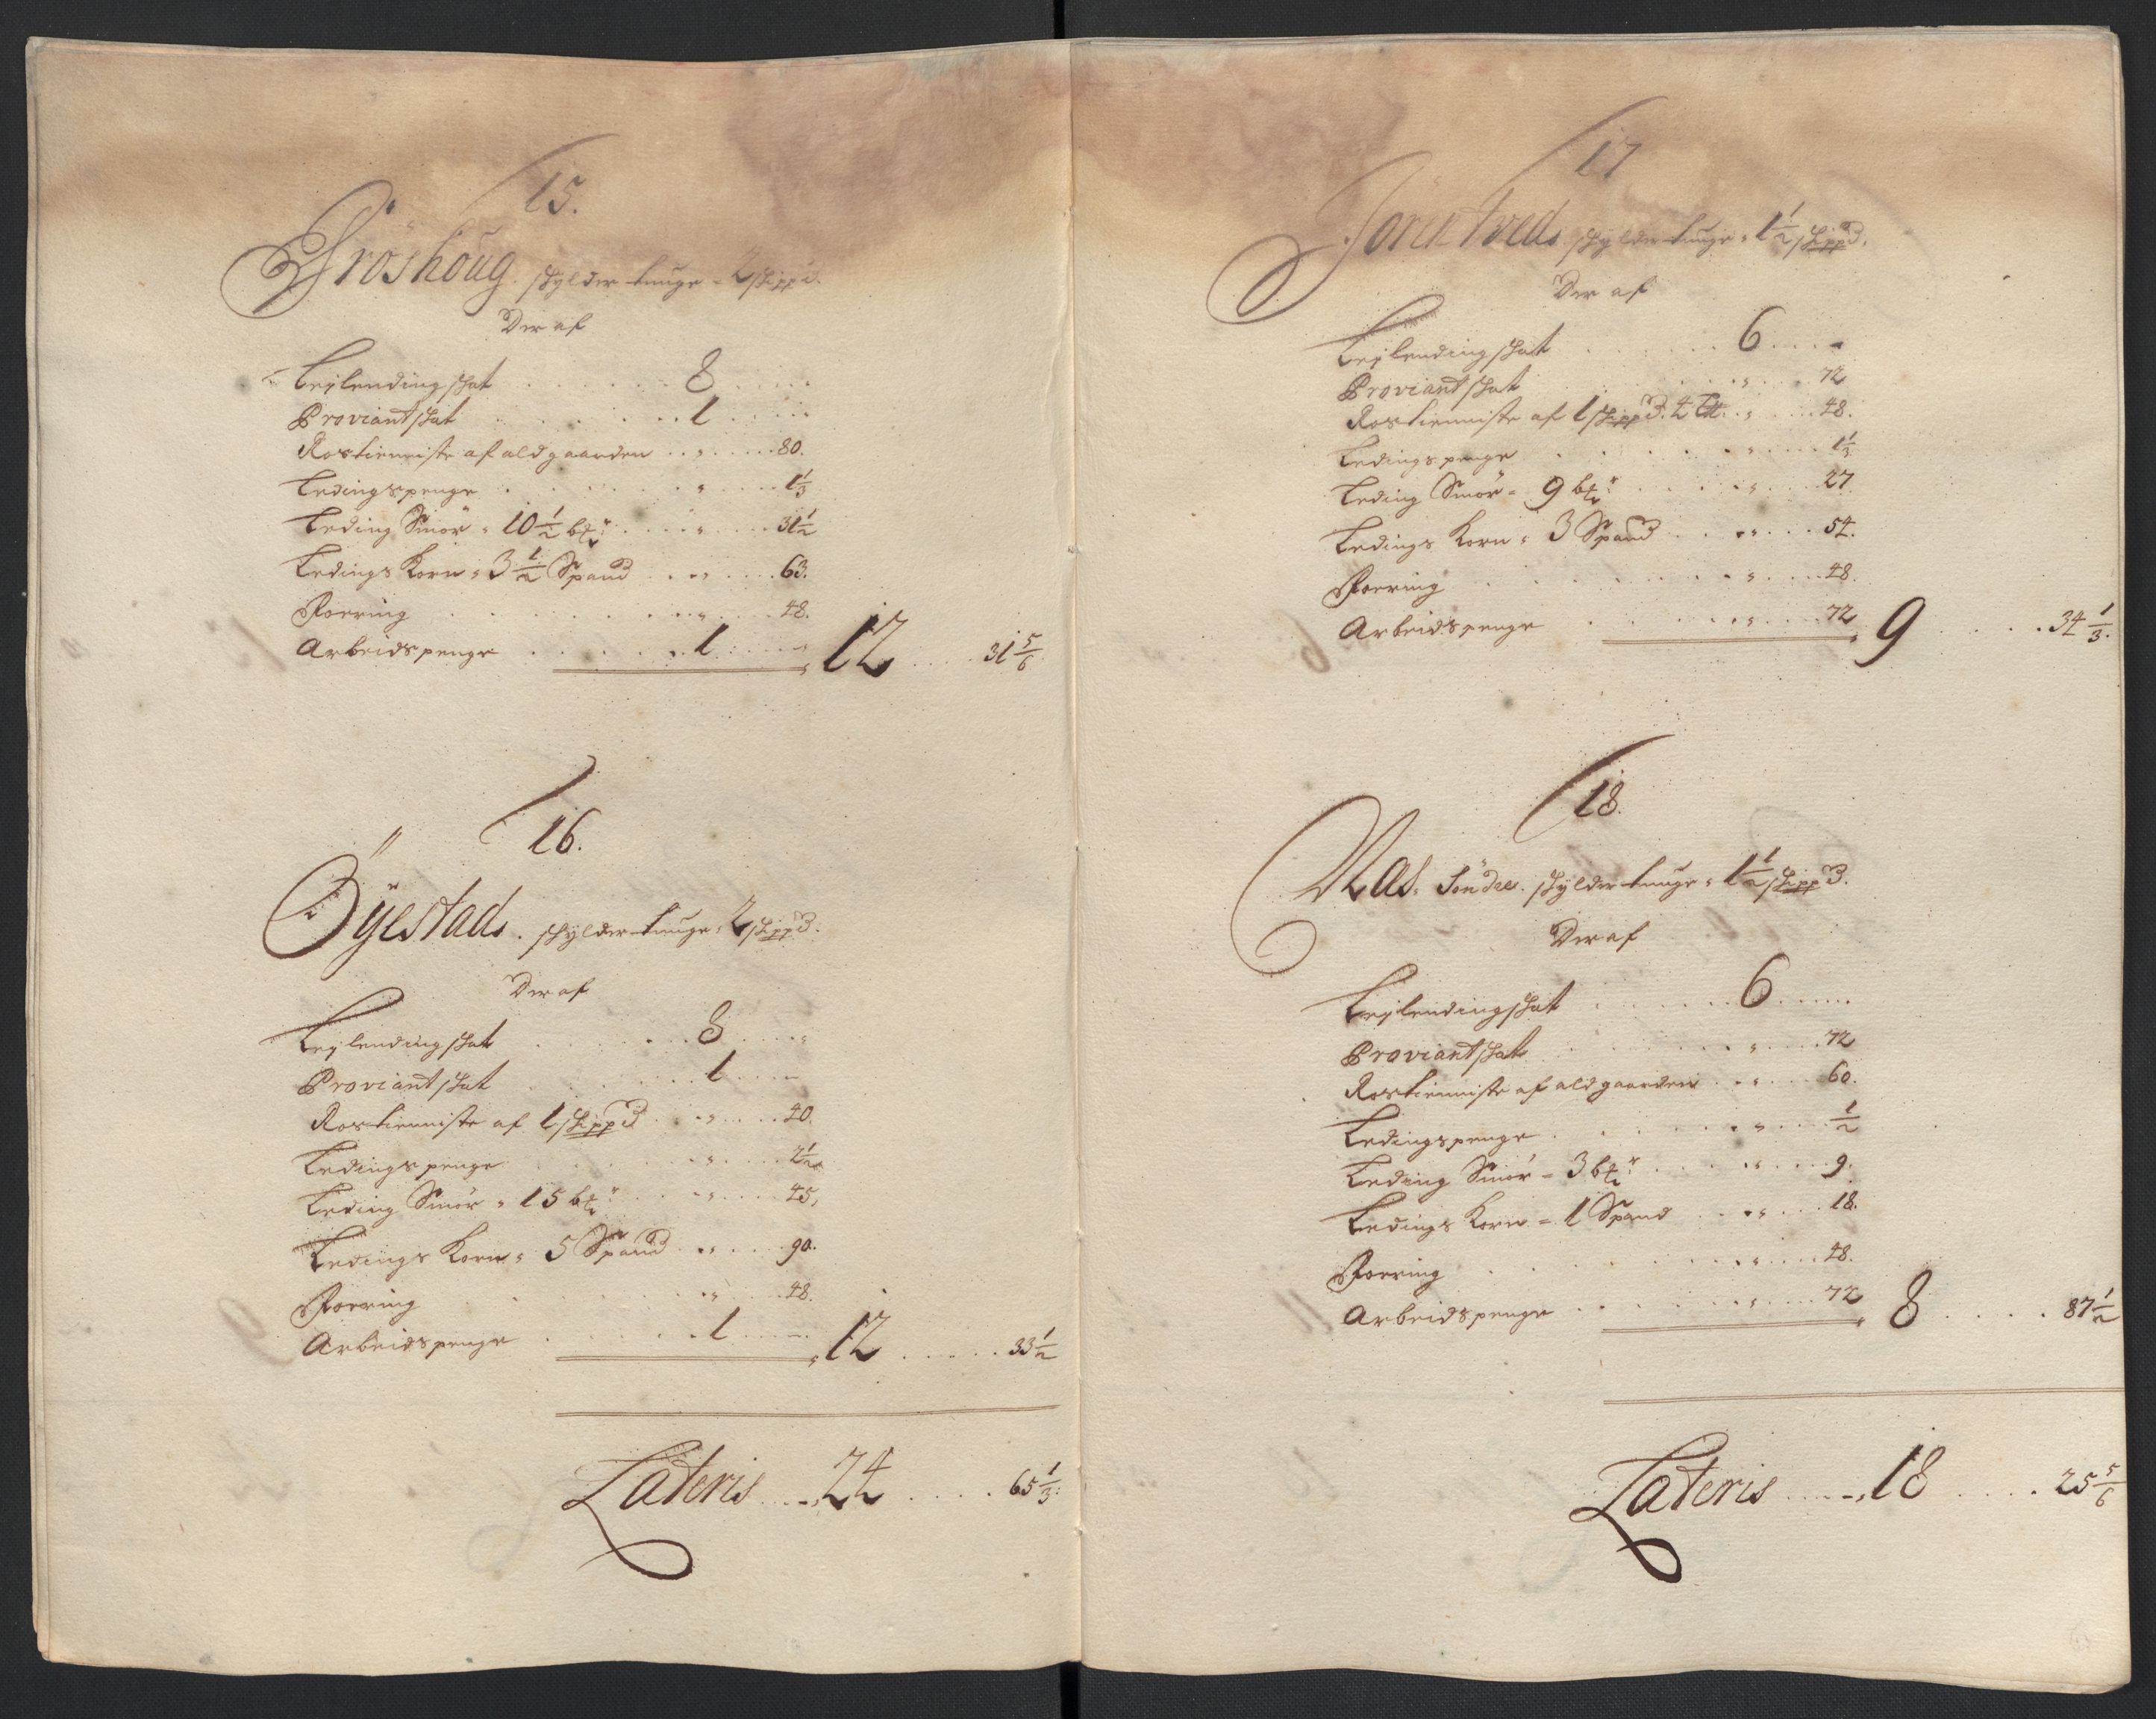 15.
Fröshoug. schylder tunge - 2 schippd.
Der af
Leylendingschat . . . . . . 8 . . . .
Proviantschat . . . . . . 1 . . . .
Rostienniste af ald gaarden . . „ . . . 80.
Ledingspenge . . . . . . „ . . . 1 1/3
Leding Smör „ 10 1/2 btr: . . . „ . . . 31 1/2
Ledings Korn „ 3 1/2 Spand . . „ . . . 63.
Foering . . . . . . „ . . . 48.
Arbeidspenge . . . . . 1 . . . - „ 12 . . . . 31 5/6
16.
Öyestad. schylder tunge „ 2 schippd.
Der af
Leylendingschat . . . . . 8 . . . „
Proviantschat . . . . . . 1 . . . -
Rostienniste af 1 schippd . . „ . . . 40.
Ledingspenge . . . . . „ . . . 2 1/2
Leding Smör „ 15 btr: . . . „ . . . 45,
Ledings Korn „ 5 Spand . . „ . . . 90.
Foering . . . . . „ . . . 48.
Arbeidspenge . . . . . 1 . . . - „ 12 . . . . . 33 1/2
Lateris . . - „ 24 . . . . 65 1/3:
17
schylder tunge „ 1 1/2 schippd.
Der af
Leylendingschat . . . . . 6 . . . -
Proviantschat . . . . . „ . . . 72
Rostienniste af 1 schippd. 4 Lt: . „ . . . 48.
Ledingspenge . . . . . „ . . . 1 1/3
Leding Smör - 9 btr: . . . „ . . . 27.
Ledings Korn „ 3 Spand . . „ . . . 54.
Foering . . . . . . „ . . . 48.
Arbeidspenge . . . . . „ . . . 72 „ 9 . . . . . 34 1/3.
18.
Aas. Söndre. schylder tunge „ 1 1/2 schippd.
Der af
Leylendingschat . . . . . 6 . . . .
Proviantschat . . . . . „ . . . 72
Rostienniste af ald gaarden . . „ . . . 60.
Ledingspenge . . . . . „ . . . 1/2
Leding Smör - 3 btr: . . . „ . . . 9.
Ledings Korn - 1 Spand . . „ . . . 18.
Foering . . . . . . „ . . . 48.
Arbeidspenge . . . . . „ . . . 72 „ 8 . . . . 87 1/2
Lateris . . . - „ 18 . . . . 25 5/6